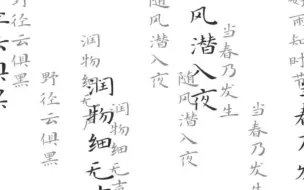 雨知时
当春乃发生
当春乃发生
风潜入夜
随风潜入夜
润物细无
润物细无
润物细
野径云俱黑
野径云俱黑
云俱黑